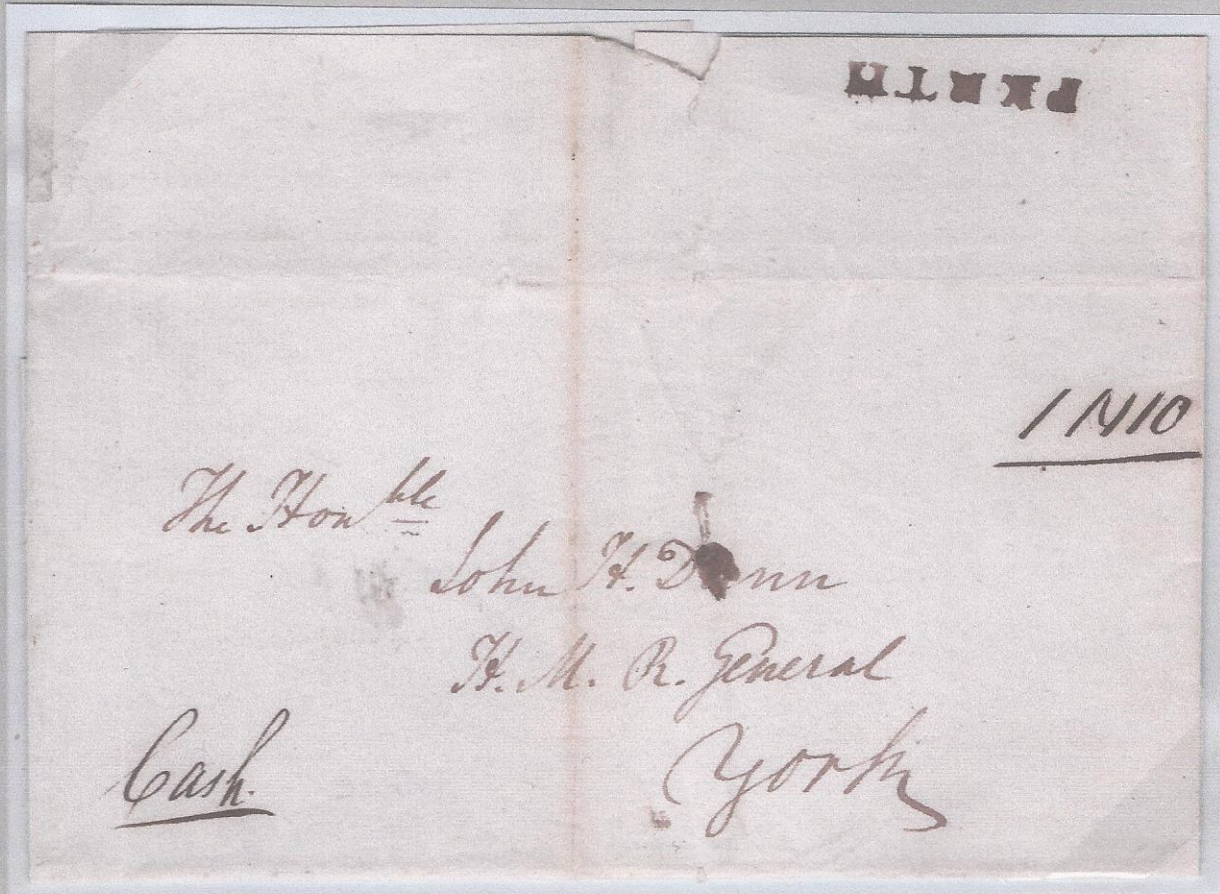 PERTH
1 N 10
The Honble
John H. Dunn
H. M. R. General
York
Cash.